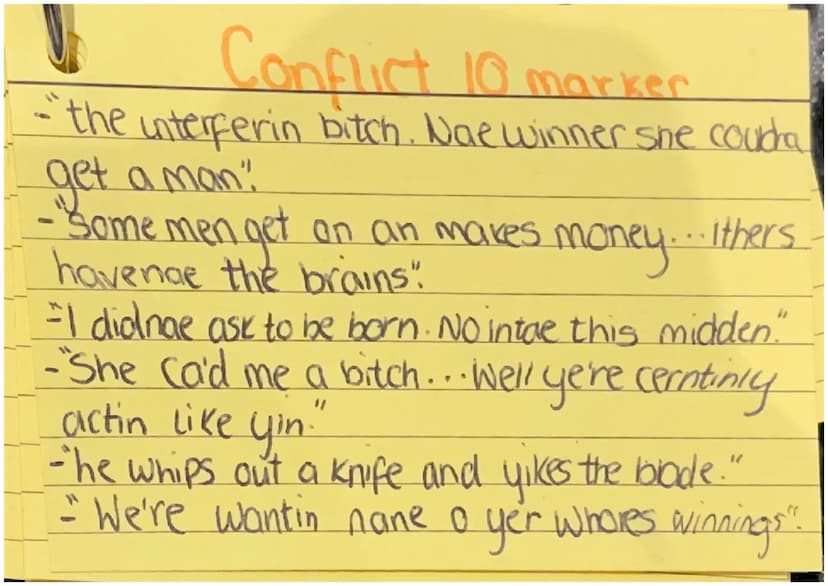 Conflict 10 marker
- "the interferin bitch. Nae winner she coudna
get a man".
- "Some men get on an makes money... ithers
havenae the brains".
- "I didnae ask to be born. No intae this midden."
- "She ca'd me a bitch... Well ye're cerntinly
actin like yin."
- "he whips out a knife and yikes the blade."
- "We're wantin nane o yer whores winnings".